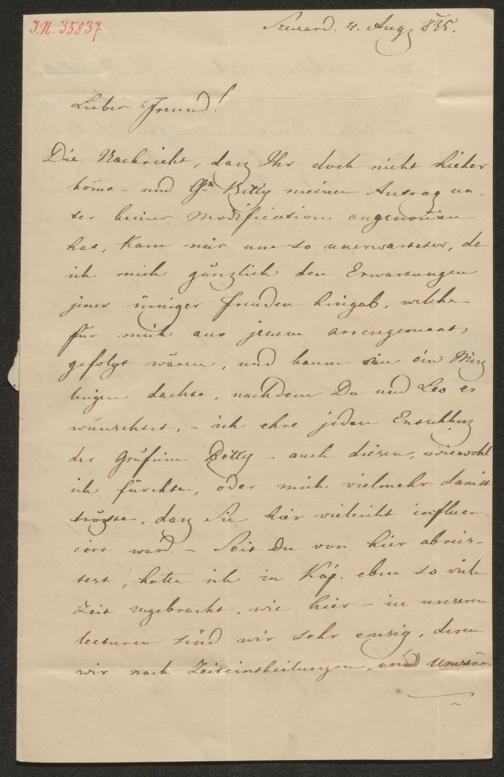 I.N. 35837
4. Aug 835.
Lieber Freund!
Die Nachricht, daß Ihr doch nicht hieher
köme – und Gfn Betty meinen Antrag un-
ter keiner Modification angenom̅en
hat, kam mir um so unerwarteter, da
ich mich gänzlich den Erwartungen
jener inniger Freuden hingab, welche
für mich aus jenem arrangement
gefolgt wären, und kaum an ein Miß
lingen dachte, nachdem Du und Leo es
wünschtet, – ich ehre jeden Entschluß
der Gräfin Betty – auch diesen, wiewohl
ich fürchte, oder mich vielmehr damit
tröste, daß Sie hier vieleicht influen-
cirt ward. – Seit Du von hier abreis-
test, habe ich in Káp. eben so viele
Zeit zugebracht, wie hier – in unseren
lecturen sind wir sehr emsig, deren
wir nach Zeiteintheilungen, und